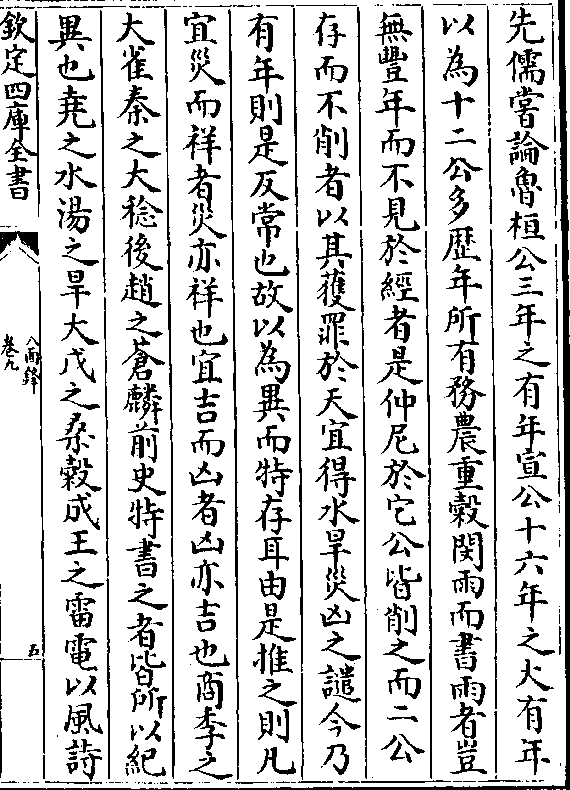 先儒嘗論魯桓公三年之有年宣公十六年之大有年
以為十二公多歷年所有務農重穀閔雨而書雨者豈
無豐年而不見於經者是仲尼於它公皆削之而二公
存而不削者以其獲罪於天宜得水旱災凶之譴今乃
有年則是反常也故以為異而特存耳由是推之則凡
宜災而祥者災亦祥也宜吉而凶者凶亦吉也商季之
大雀秦之大稔後趙之蒼麟前史特書之者皆所以紀
異也堯之水湯之旱大戊之桑穀成王之雷電以風詩
欽定四庫全書
八面鋒
卷九
五